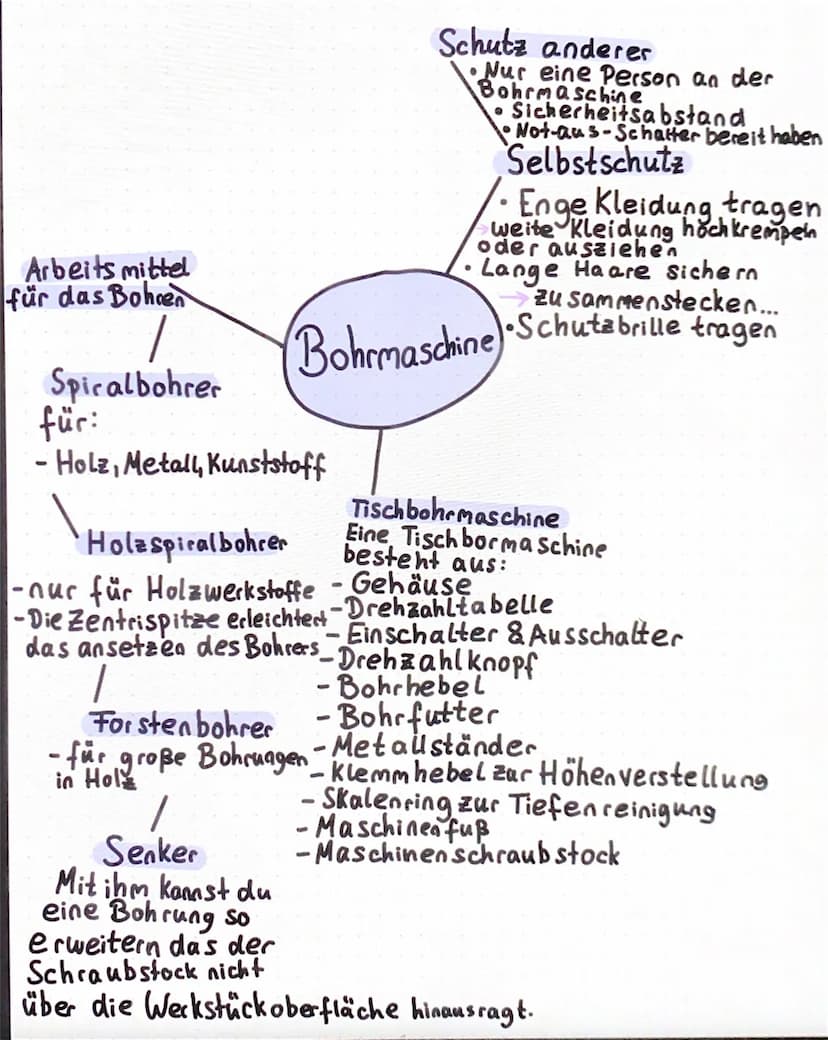 Schutz anderer
• Nur eine Person an der
Bohrmaschine
• Sicherheitsabstand
• Not-aus-Schalter bereit haben
Selbstschutz
• Enge Kleidung tragen
→ weite Kleidung hochkrempeln
oder ausziehen
• Lange Haare sichern
→ zusammenstecken...
• Schutzbrille tragen
Bohrmaschine
Arbeitsmittel
für das Bohren
Spiralbohrer
für:
- Holz, Metall, Kunststoff
Holzspiralbohrer
- nur für Holzwerkstoffe
- Die Zentrispitze erleichtert
das ansetzen des Bohrers
Forstenbohrer
- für große Bohrungen
in Holz
Senker
Mit ihm kannst du
eine Bohrung so
erweitern das der
Schraubstock nicht
über die Werkstückoberfläche hinausragt.
Tischbohrmaschine
Eine Tischbormaschine
besteht aus:
- Gehäuse
- Drehzahltabelle
- Einschalter & Ausschalter
- Drehzahlknopf
- Bohrhebel
- Bohrfutter
- Metallständer
- Klemmhebel zur Höhenverstellung
- Skalenring zur Tiefenreinigung
- Maschinenfuß
- Maschinenschraubstock